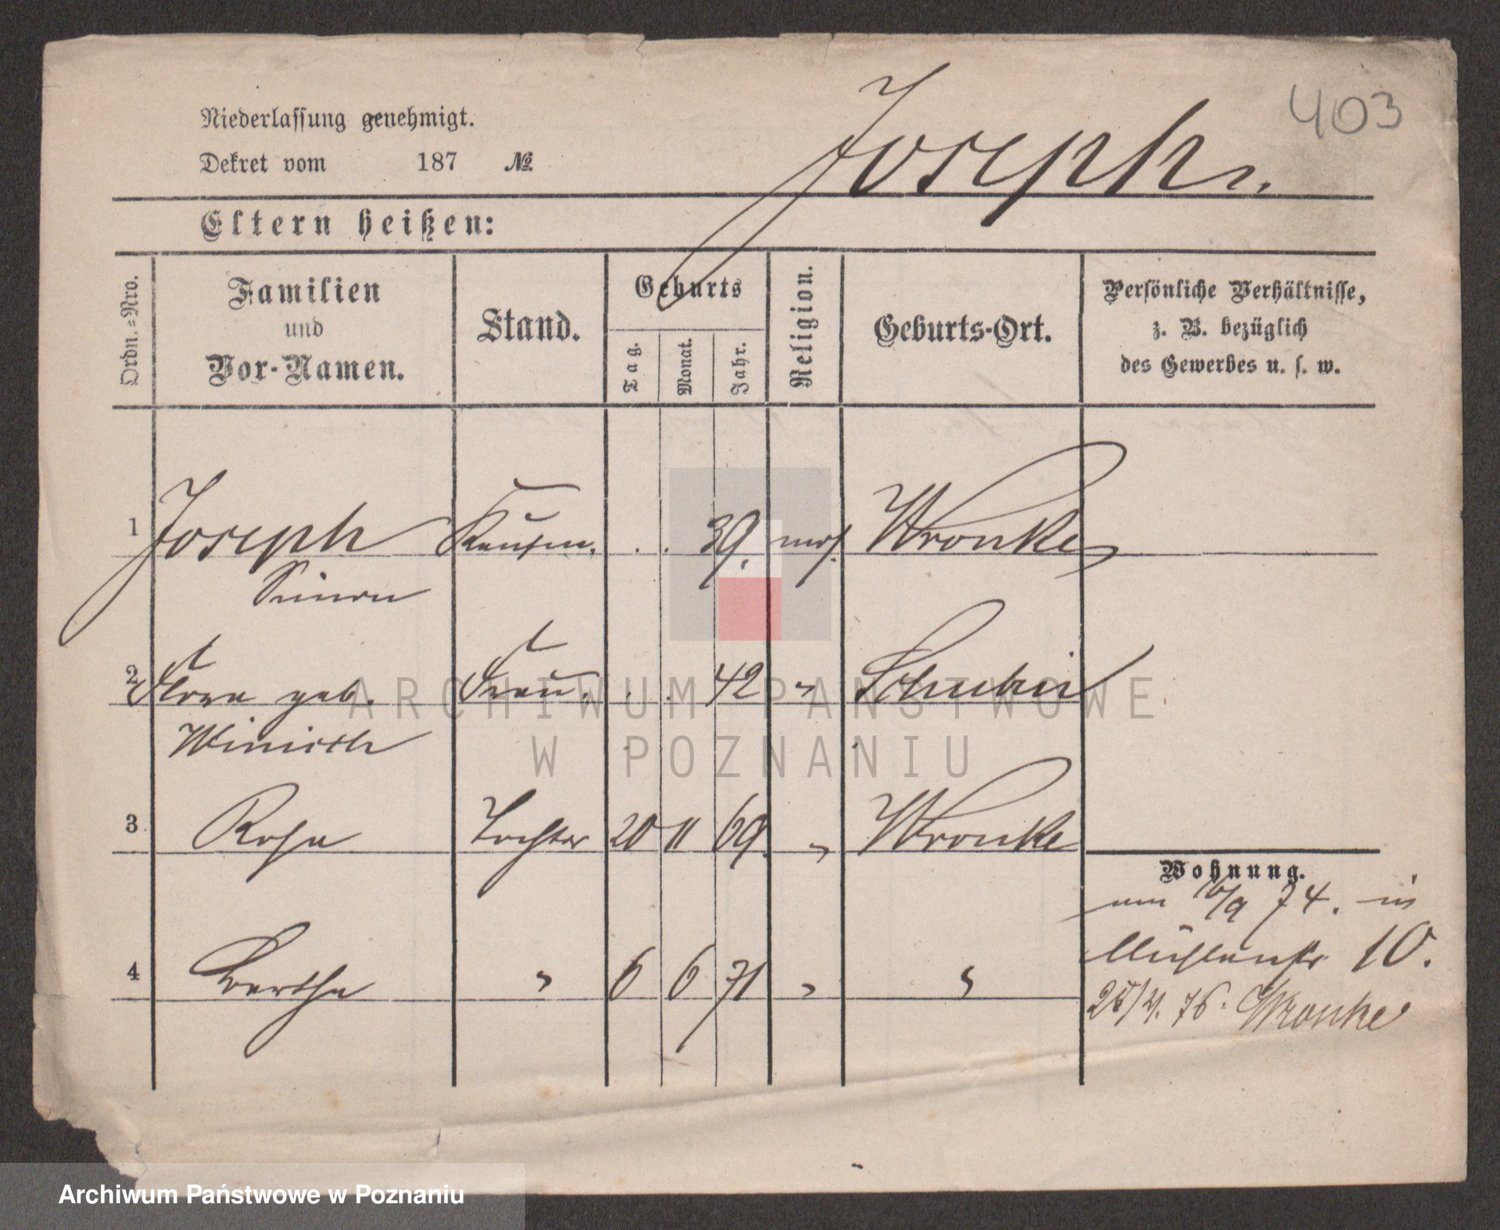 403
Joseph.
Niederlassung genehmigt.
Dekret vom 187 №
Eltern heißen:
Ordn.=Nro.
Familien
und
Vor-Namen.
Stand.
Geburts
Tag.
Monat.
Jahr.
Religion.
Geburts-Ort.
Persönliche Verhältnisse,
z. B. bezüglich
des Gewerbes u. s. w.
1 Joseph Kaufm. . . 39. mos. Wronke
Simon
2 Flora geb. Frau . . 42 " Schubin
3 Rosa Tochter 20 11 69 " Wronke
4 Bertha " 6 6 71 " "
Wohnung.
74. in
Mühlenstr 10.
76. Wronke
ARCHIWUM PAŃSTWOWE
W POZNANIU
Archiwum Państwowe w Poznaniu